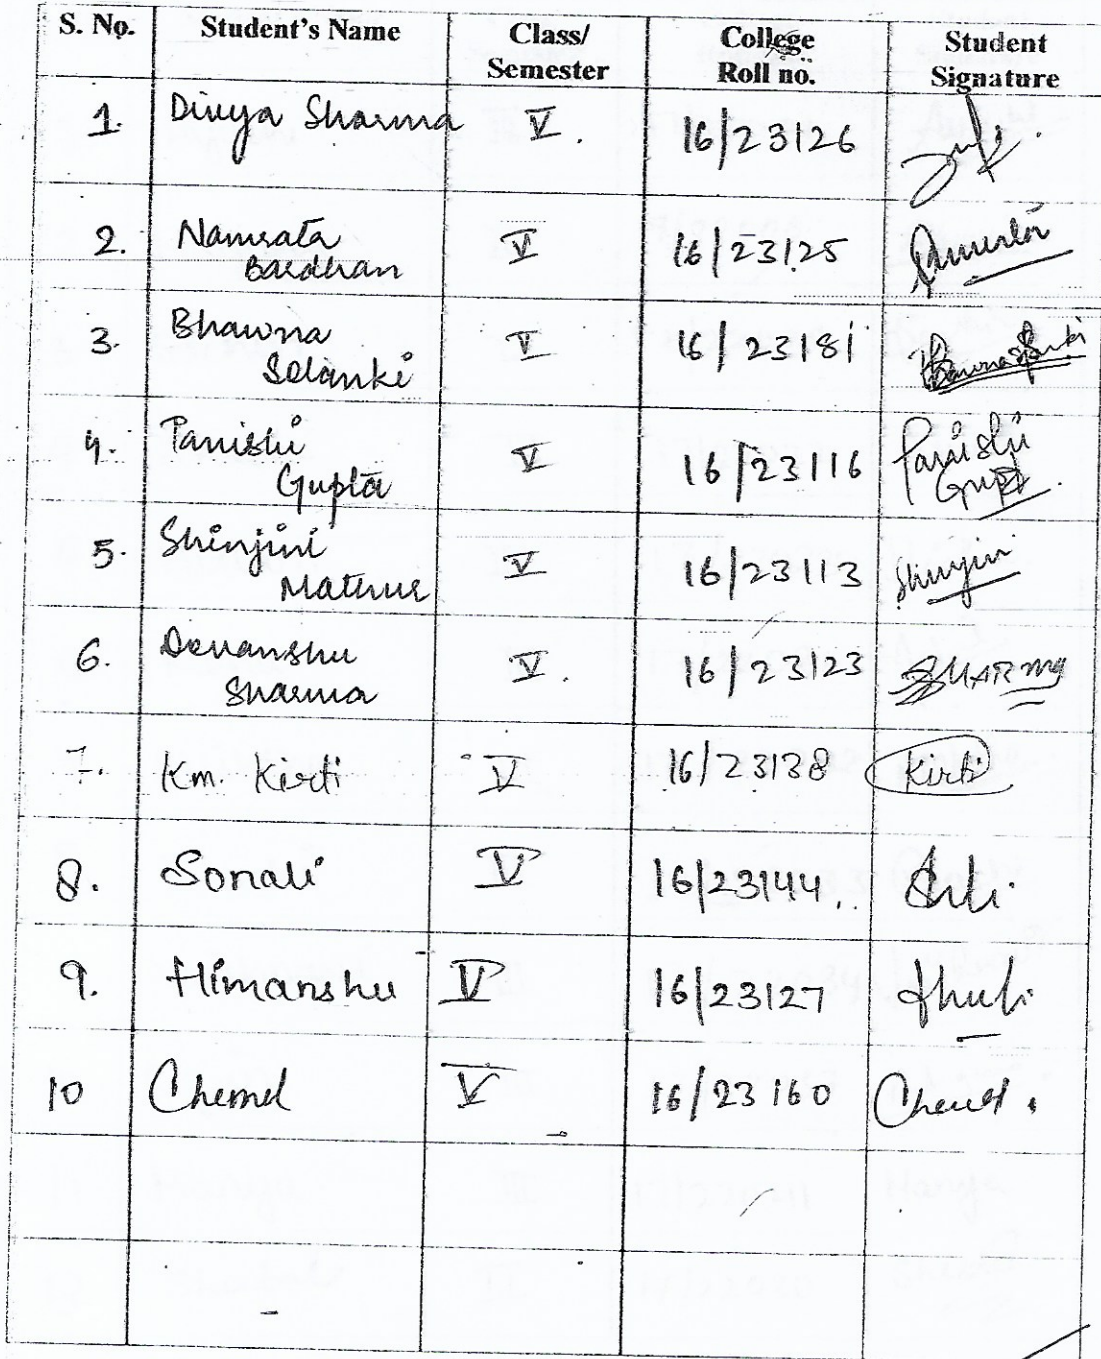 S. No. Student's Name Class/ Semester College Roll no. Student Signature
1. Divya Sharma V. 16/23126
2. Namrata Bardhan V 16/23125
3. Bhawna Solanki V 16/23181
4. Panishi Gupta V 16/23116
5. Shinjini Mathur V 16/23113 Shinjini
6. Devanshu Sharma V. 16/23123 SHARMA
7. Km. Kirti V 16/23138 Kirti
8. Sonali V 16/23144
9. Himanshu V 16/23127
10 V 16/23160